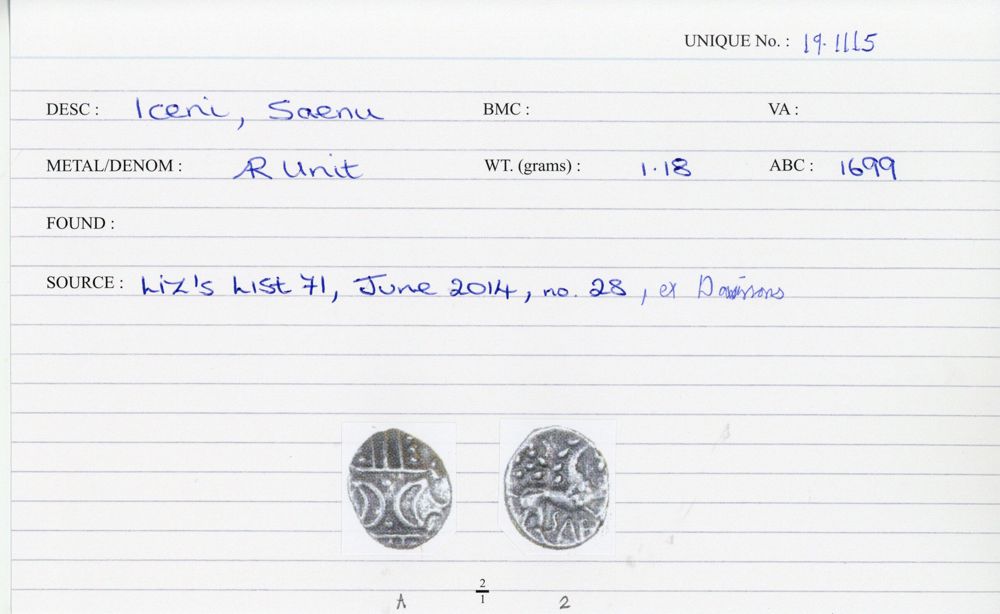 UNIQUE No. : 19.1115
DESC : Iceni, Saenu BMC : VA :
METAL/DENOM : AR Unit WT. (grams) : 1.18 ABC : 1699
FOUND :
SOURCE : Liz's List 71, June 2014, no. 28, ex Davissons
SAE
2
1
A 2